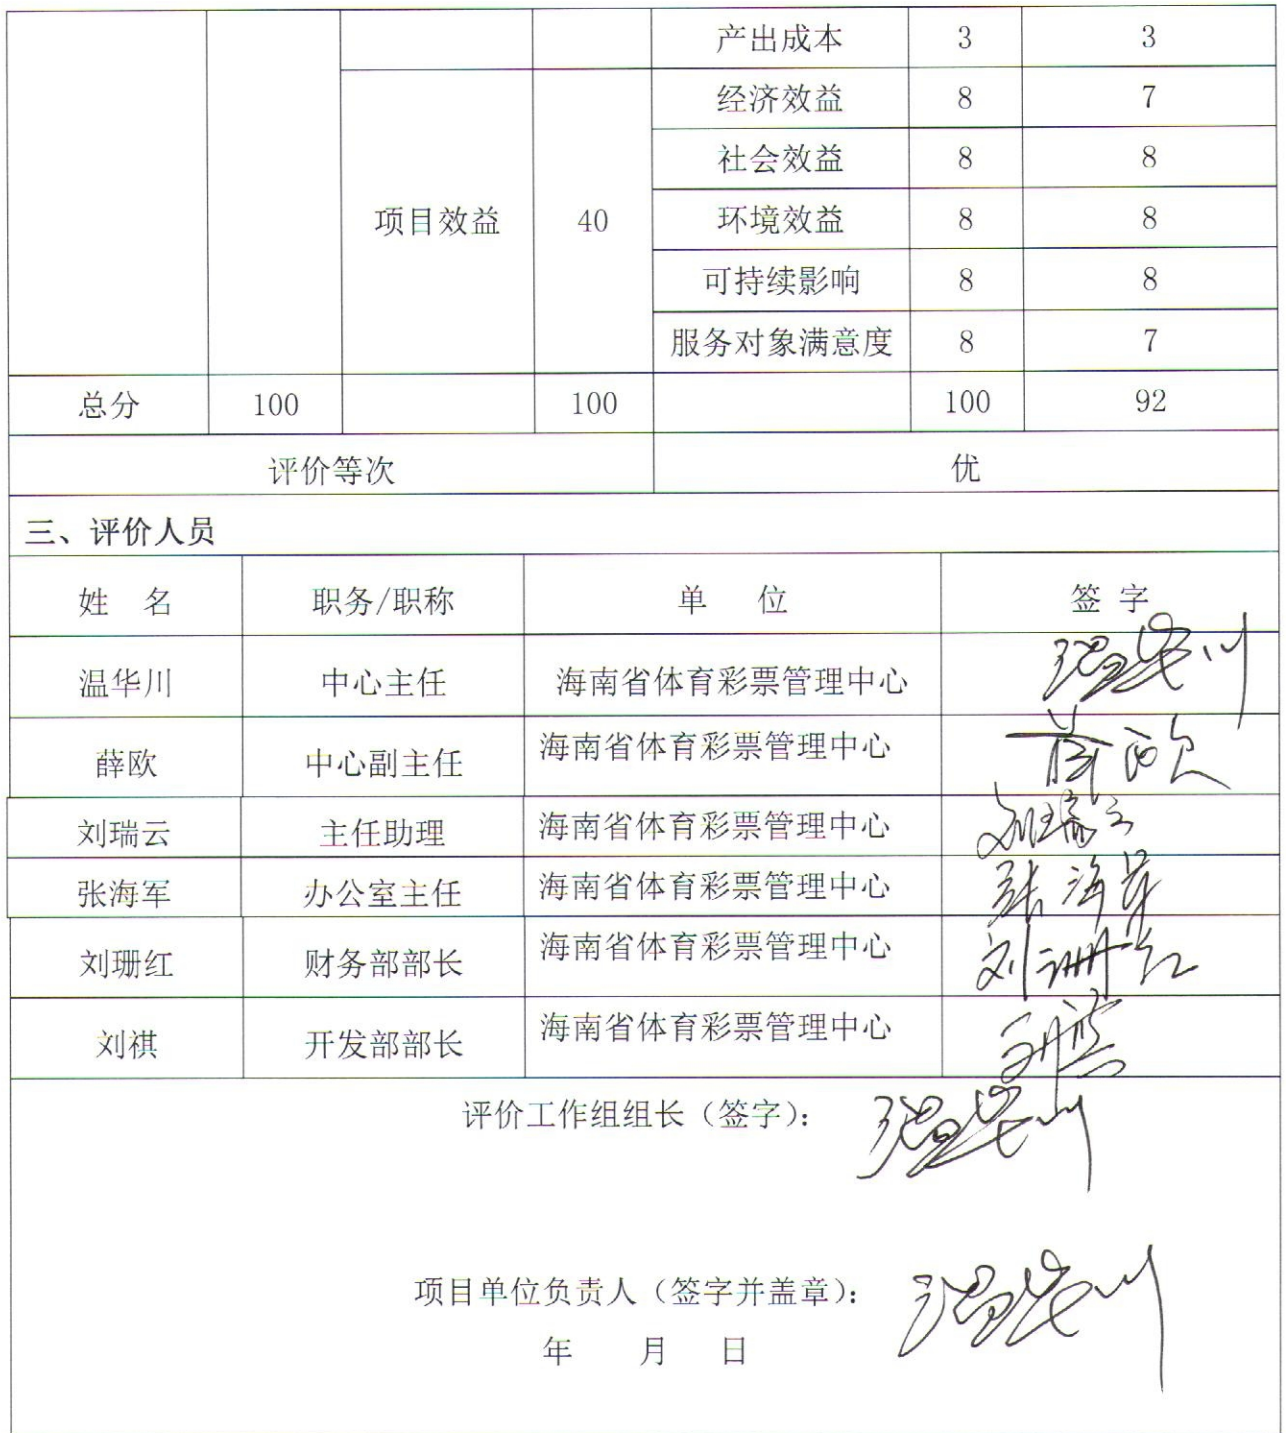 产出成本 3 3
经济效益 8 7
社会效益 8 8
项目效益 40 环境效益 8 8
可持续影响 8 8
服务对象满意度 8 7
总分 100 100 100 92
评价等次 优
三、评价人员
姓 名 职务/职称 单 位 签 字
温华川 中心主任 海南省体育彩票管理中心 温华川
薛欧 中心副主任 海南省体育彩票管理中心 薛欧
刘瑞云 主任助理 海南省体育彩票管理中心 刘瑞云
张海军 办公室主任 海南省体育彩票管理中心 张海军
刘珊红 财务部部长 海南省体育彩票管理中心 刘珊红
刘祺 开发部部长 海南省体育彩票管理中心 刘祺
评价工作组组长（签字）： 温华川
项目单位负责人（签字并盖章）： 温华川
年 月 日